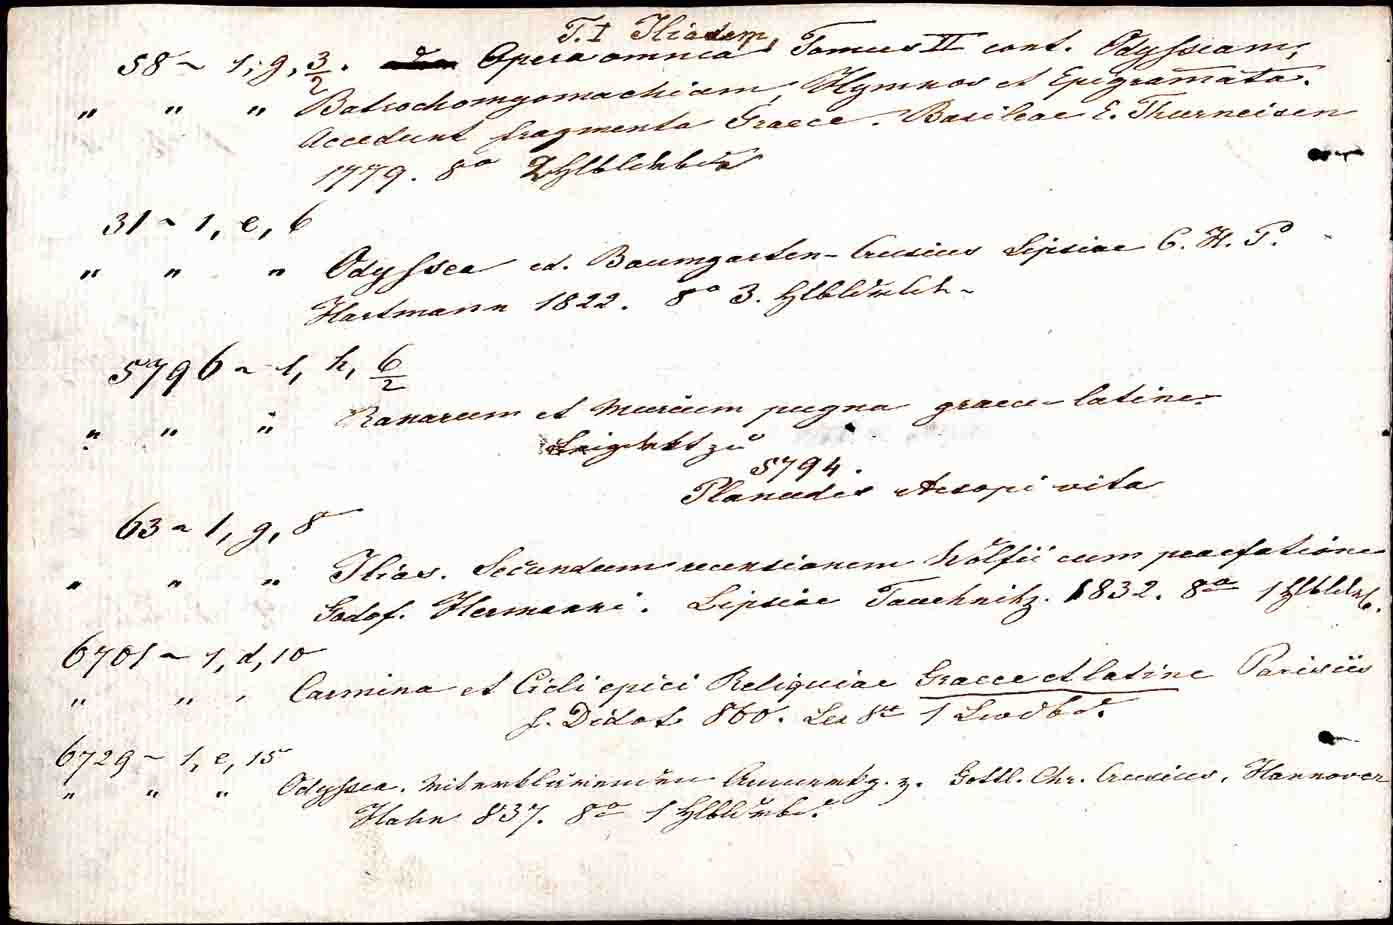 T. I Iliadem,
58 ~ 1, g, 3/2. Opera omnia Tomus II cont. Odysseam,
" " " Batrochomyomachiam, Hymnos et Epigramata.
Accedunt fragmenta Graece. Basileae E. Thurneisen
1779. 8o 2 Hlbldrbde
31 ~ 1, e, 6
" " " Odyssea ed. Baumgarten-Crusius Lipsiae C. H. F.
Hartmann 1822. 8o 3.
5796 ~ 1, h, 6/2
" " " Ranarum et Murium pugna graece-latine.
zu
5794.
Planudis Aesopi vita
63 ~ 1, g, 8
" " " Ilias. Secundum recensionem Wolfii cum praefatione
Godof. Hermanni. Lipsiae Tauchnitz. 1832. 8o 1
6701 ~ 1, d, 10
" " " Carmina et Cicli epici Reliquiae Graece et latine Parisiis
f. Didot 860. Lex 8o 1
6729 ~ 1, e, 15
" " " Odyssea. mit erklärenden Anmerkg. v. Gottl. Chr. Crusius, Hannover
Hahn 837. 8o 1